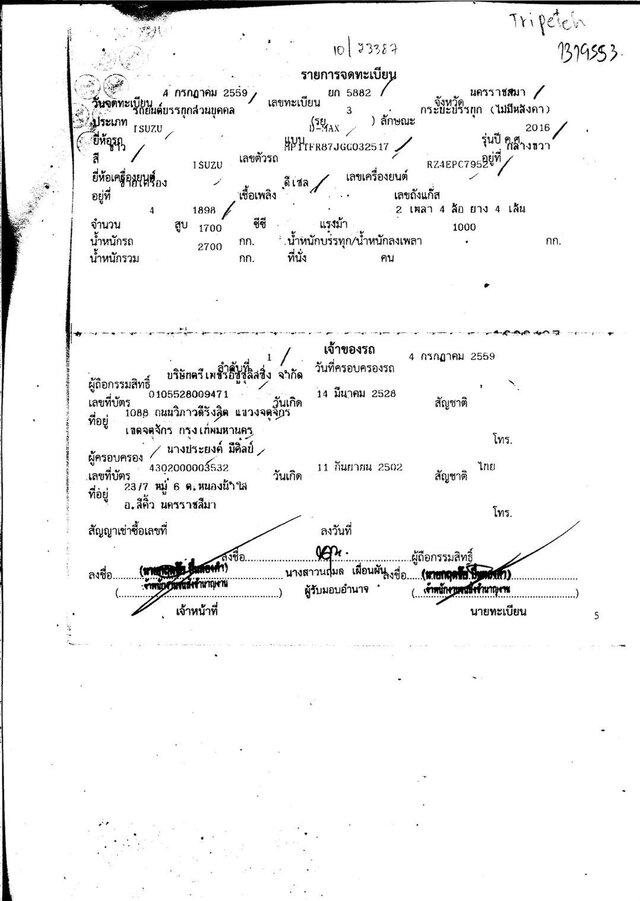 Tripetch
10/73387
1379553
รายการจดทะเบียน
4 กรกฎาคม 2559 ยก 5882 นครราชสีมา
วันจดทะเบียน เลขทะเบียน จังหวัด
รถยนต์บรรทุกส่วนบุคคล 3 กระบะบรรทุก (ไม่มีหลังคา)
ประเภท (รย ) ลักษณะ
ISUZU D-MAX 2016
ยี่ห้อรถ แบบ รุ่นปี ค.ศ.
ขาว MP1TFR87JGG032517 กลางขวา
สี เลขตัวรถ อยู่ที่
ISUZU RZ4EPC7952
ยี่ห้อเครื่องยนต์ เลขเครื่องยนต์
ซ้ายเครื่อง ดีเซล
อยู่ที่ เชื้อเพลิง เลขถังแก๊ส
4 1898 2 เพลา 4 ล้อ ยาง 4 เส้น
จำนวน สูบ ซีซี แรงม้า
1700 1000
น้ำหนักรถ กก. น้ำหนักบรรทุก/น้ำหนักลงเพลา กก.
2700
น้ำหนักรวม กก. ที่นั่ง คน
เจ้าของรถ
1 4 กรกฎาคม 2559
ลำดับที่ วันที่ครอบครองรถ
บริษัทตรีเพชรอีซูซุลิสซิ่ง จำกัด
ผู้ถือกรรมสิทธิ์
0105528009471 14 มีนาคม 2528
เลขที่บัตร วันเกิด สัญชาติ
1088 ถนนวิภาวดีรังสิต แขวงจตุจักร
ที่อยู่
เขตจตุจักร กรุงเทพมหานคร
โทร.
นางประยงค์ มีศิลป์
ผู้ครอบครอง
4302000003532 11 กันยายน 2502 ไทย
เลขที่บัตร วันเกิด สัญชาติ
23/7 หมู่ 6 ต.หนองน้ำใส
ที่อยู่
อ.สีคิ้ว นครราชสีมา
โทร.
สัญญาเช่าซื้อเลขที่ ลงวันที่
ลงชื่อ ผู้ถือกรรมสิทธิ์
ลงชื่อ เผื่อนผัน ลงชื่อ
ผู้รับมอบอำนาจ
เจ้าหน้าที่ นายทะเบียน
5